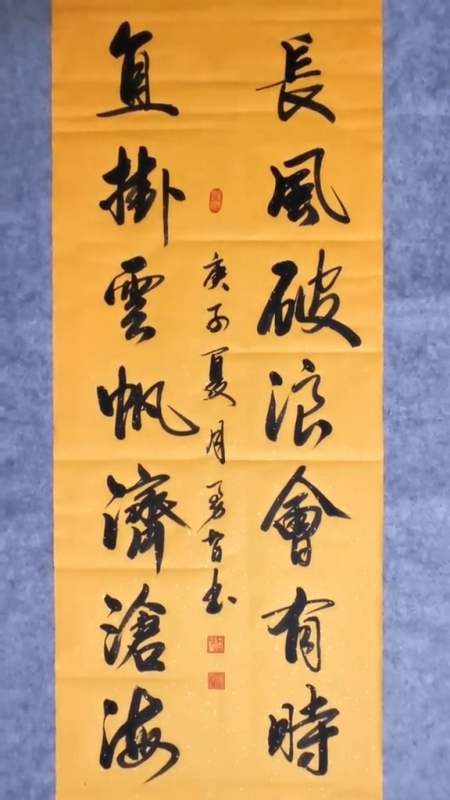 長風破浪會有時
直掛雲帆濟滄海
庚子夏月勇智书